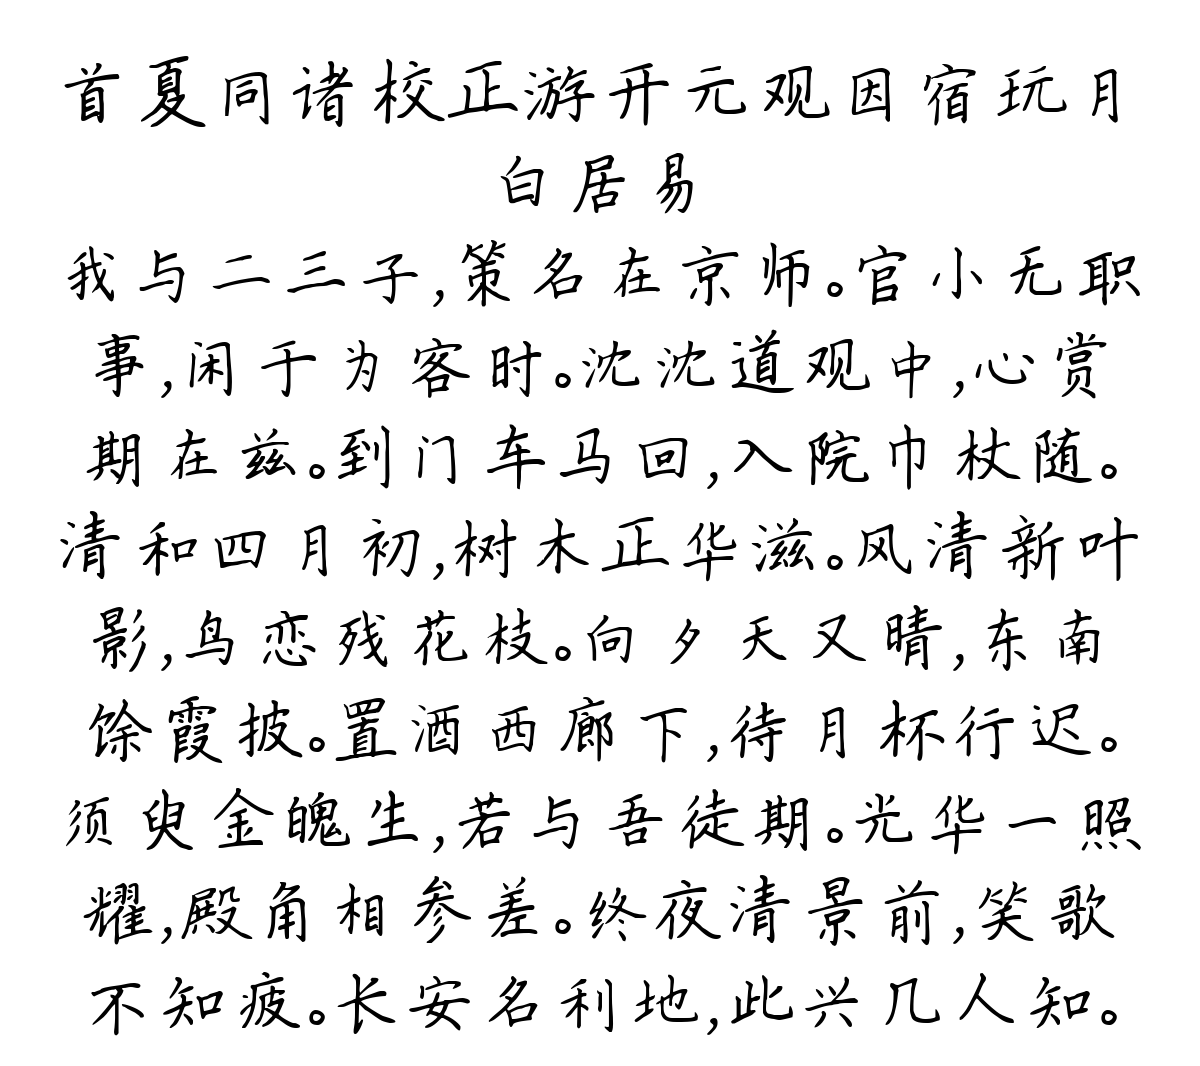 首夏同诸校正游开元观因宿玩月
白居易
我与二三子,策名在京师。官小无职
事,闲于为客时。沈沈道观中,心赏
期在兹。到门车马回,入院巾杖随。
清和四月初,树木正华滋。风清新叶
影,鸟恋残花枝。向夕天又晴,东南
馀霞披。置酒西廊下,待月杯行迟。
须臾金魄生,若与吾徒期。光华一照
耀,殿角相参差。终夜清景前,笑歌
不知疲。长安名利地,此兴几人知。